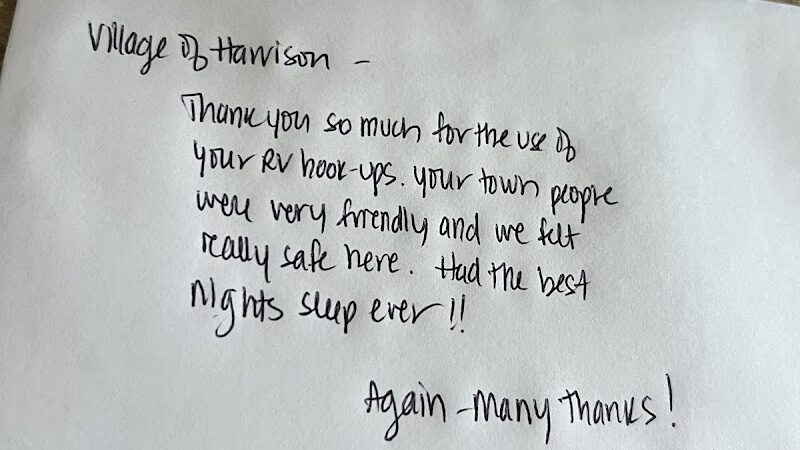 Village of Harrison –
Thank you so much for the use of
your RV hook-ups. your town people
were very friendly and we felt
really safe here. Had the best
nights sleep ever!!
Again – Many Thanks!